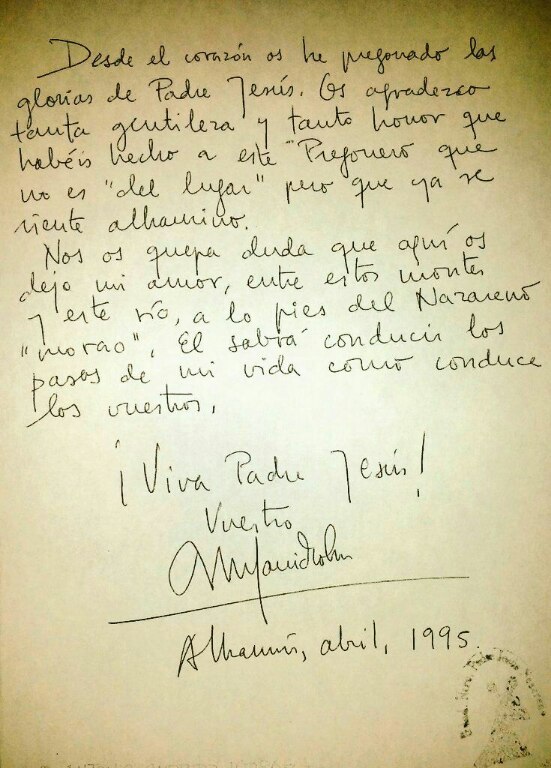 Desde el corazón os he pregonado las
glorias de Padre Jesús. Os agradezco
tanta gentileza y tanto honor que
habéis hecho a este Pregonero que
no es "del lugar" pero que ya se
siente alhamino.
Nos os quepa duda que aquí os
dejo mi amor, entre estos montes
y este río, a lo pies del Nazareno
"morao". El sabrá conducir los
pasos de mi vida como conduce
los vuestros.
¡Viva Padre Jesús!
Vuestro
Alhamís, abril, 1995.
Ntro. Padre Jesús Nazareno